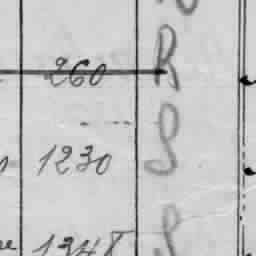 260 R
1230 S
1348 S